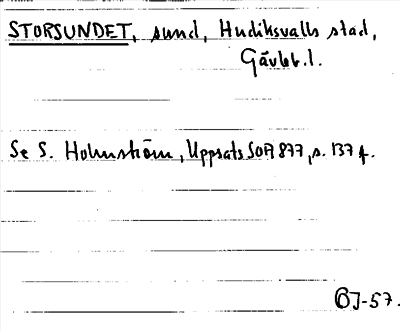 STORSUNDET, sund, Hudiksvalls stad,
Gävleb. l.
Se S. Holmström, Uppsats SOA 877, s. 137 f.
BJ-57.